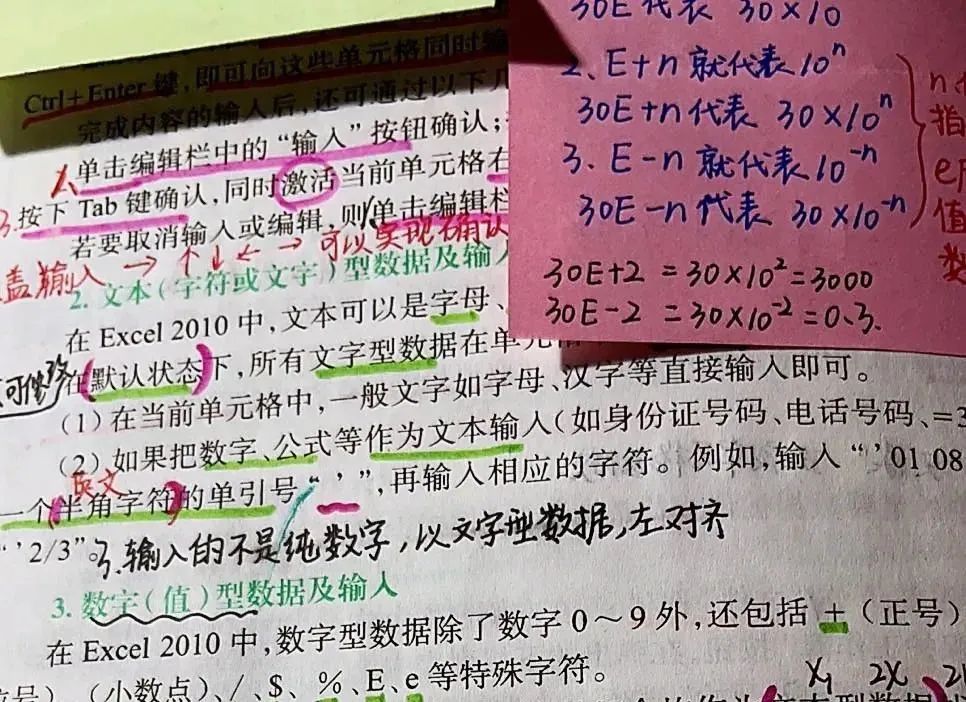 Ctrl+Enter 键,即可向这些单元格同时输
完成内容的输入后,还可通过以下几
1.单击编辑栏中的“输入”按钮确认;
3.按下 Tab 键确认,同时激活当前单元格右
若要取消输入或编辑,则单击编辑栏
盖输入 → ↑ ↓ ← → 可以实现确认
2. 文本(字符或文字)型数据及输入
在 Excel 2010 中,文本可以是字母、
可修改
在默认状态下,所有文字型数据在单元格
(1)在当前单元格中,一般文字如字母、汉字等直接输入即可。
(2)如果把数字、公式等作为文本输入(如身份证号码、电话号码、=3
英文
一个半角字符的单引号“ ' ”,再输入相应的字符。例如,输入“ ' 01 08
“ ' 2/3”。
3.输入的不是纯数字,以文字型数据,左对齐
3. 数字(值)型数据及输入
在 Excel 2010 中,数字型数据除了数字 0～9 外,还包括 +(正号)
(小数点)、/、$、%、E、e 等特殊字符。
X₁ 2X
30E代表 30×10
2、E+n 就代表10ⁿ
30E+n代表 30×10ⁿ
3. E-n 就代表10⁻ⁿ
30E-n代表 30×10⁻ⁿ
30E+2 =30×10²=3000
30E-2 =30×10⁻²=0.3.
n
指
e
值
数